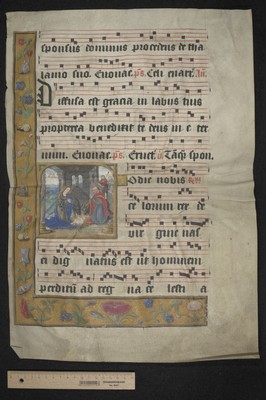 sponsus dominus procedens de tha
lamo suo. Euouae. ps. Celi enarr. An.
Diffusa est gracia in labiis tuis
propterea benedixit te deus in e ter
num. Euouae. ps. Eruct.
Odie nobis
ce lorum rex de
vir gine nas
ci dig natus est ut hominem
perditum ad reg na ce lesti a